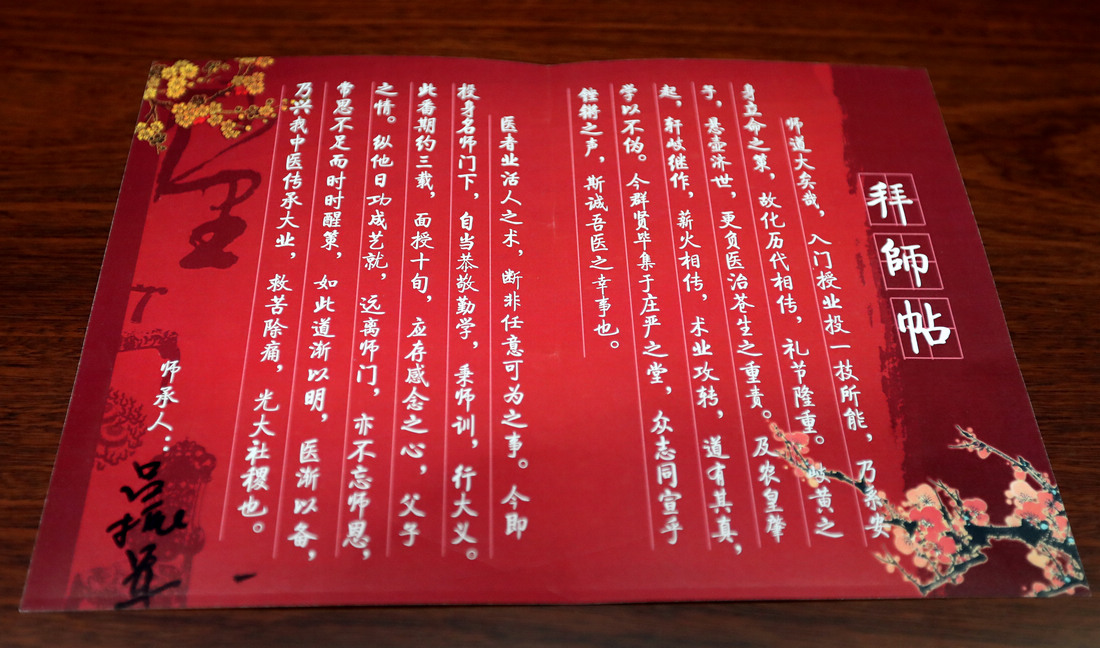 拜師帖
师道大矣哉，入门授业投一技所能，乃系安
身立命之策，故化历代相传，礼节隆重。岐黄之
予，悬壶济世，更负医治苍生之重责。及农皇肇
起，轩岐继作，薪火相传，术业攻转，道有其真，
学以不伪。今群贤毕集于庄严之堂，众志同宣乎
铿锵之声，斯诚吾医之幸事也。
医者业活人之术，断非任意可为之事。今即
投身名师门下，自当恭敬勤学，秉师训，行大义。
此番期约三载，面授十旬，应存感念之心，父子
之情。纵他日功成艺就，远离师门，亦不忘师恩，
常思不足而时时醒策，如此道渐以明，医渐以备，
乃兴我中医传承大业，救苦除痛，光大社稷也。
师承人：